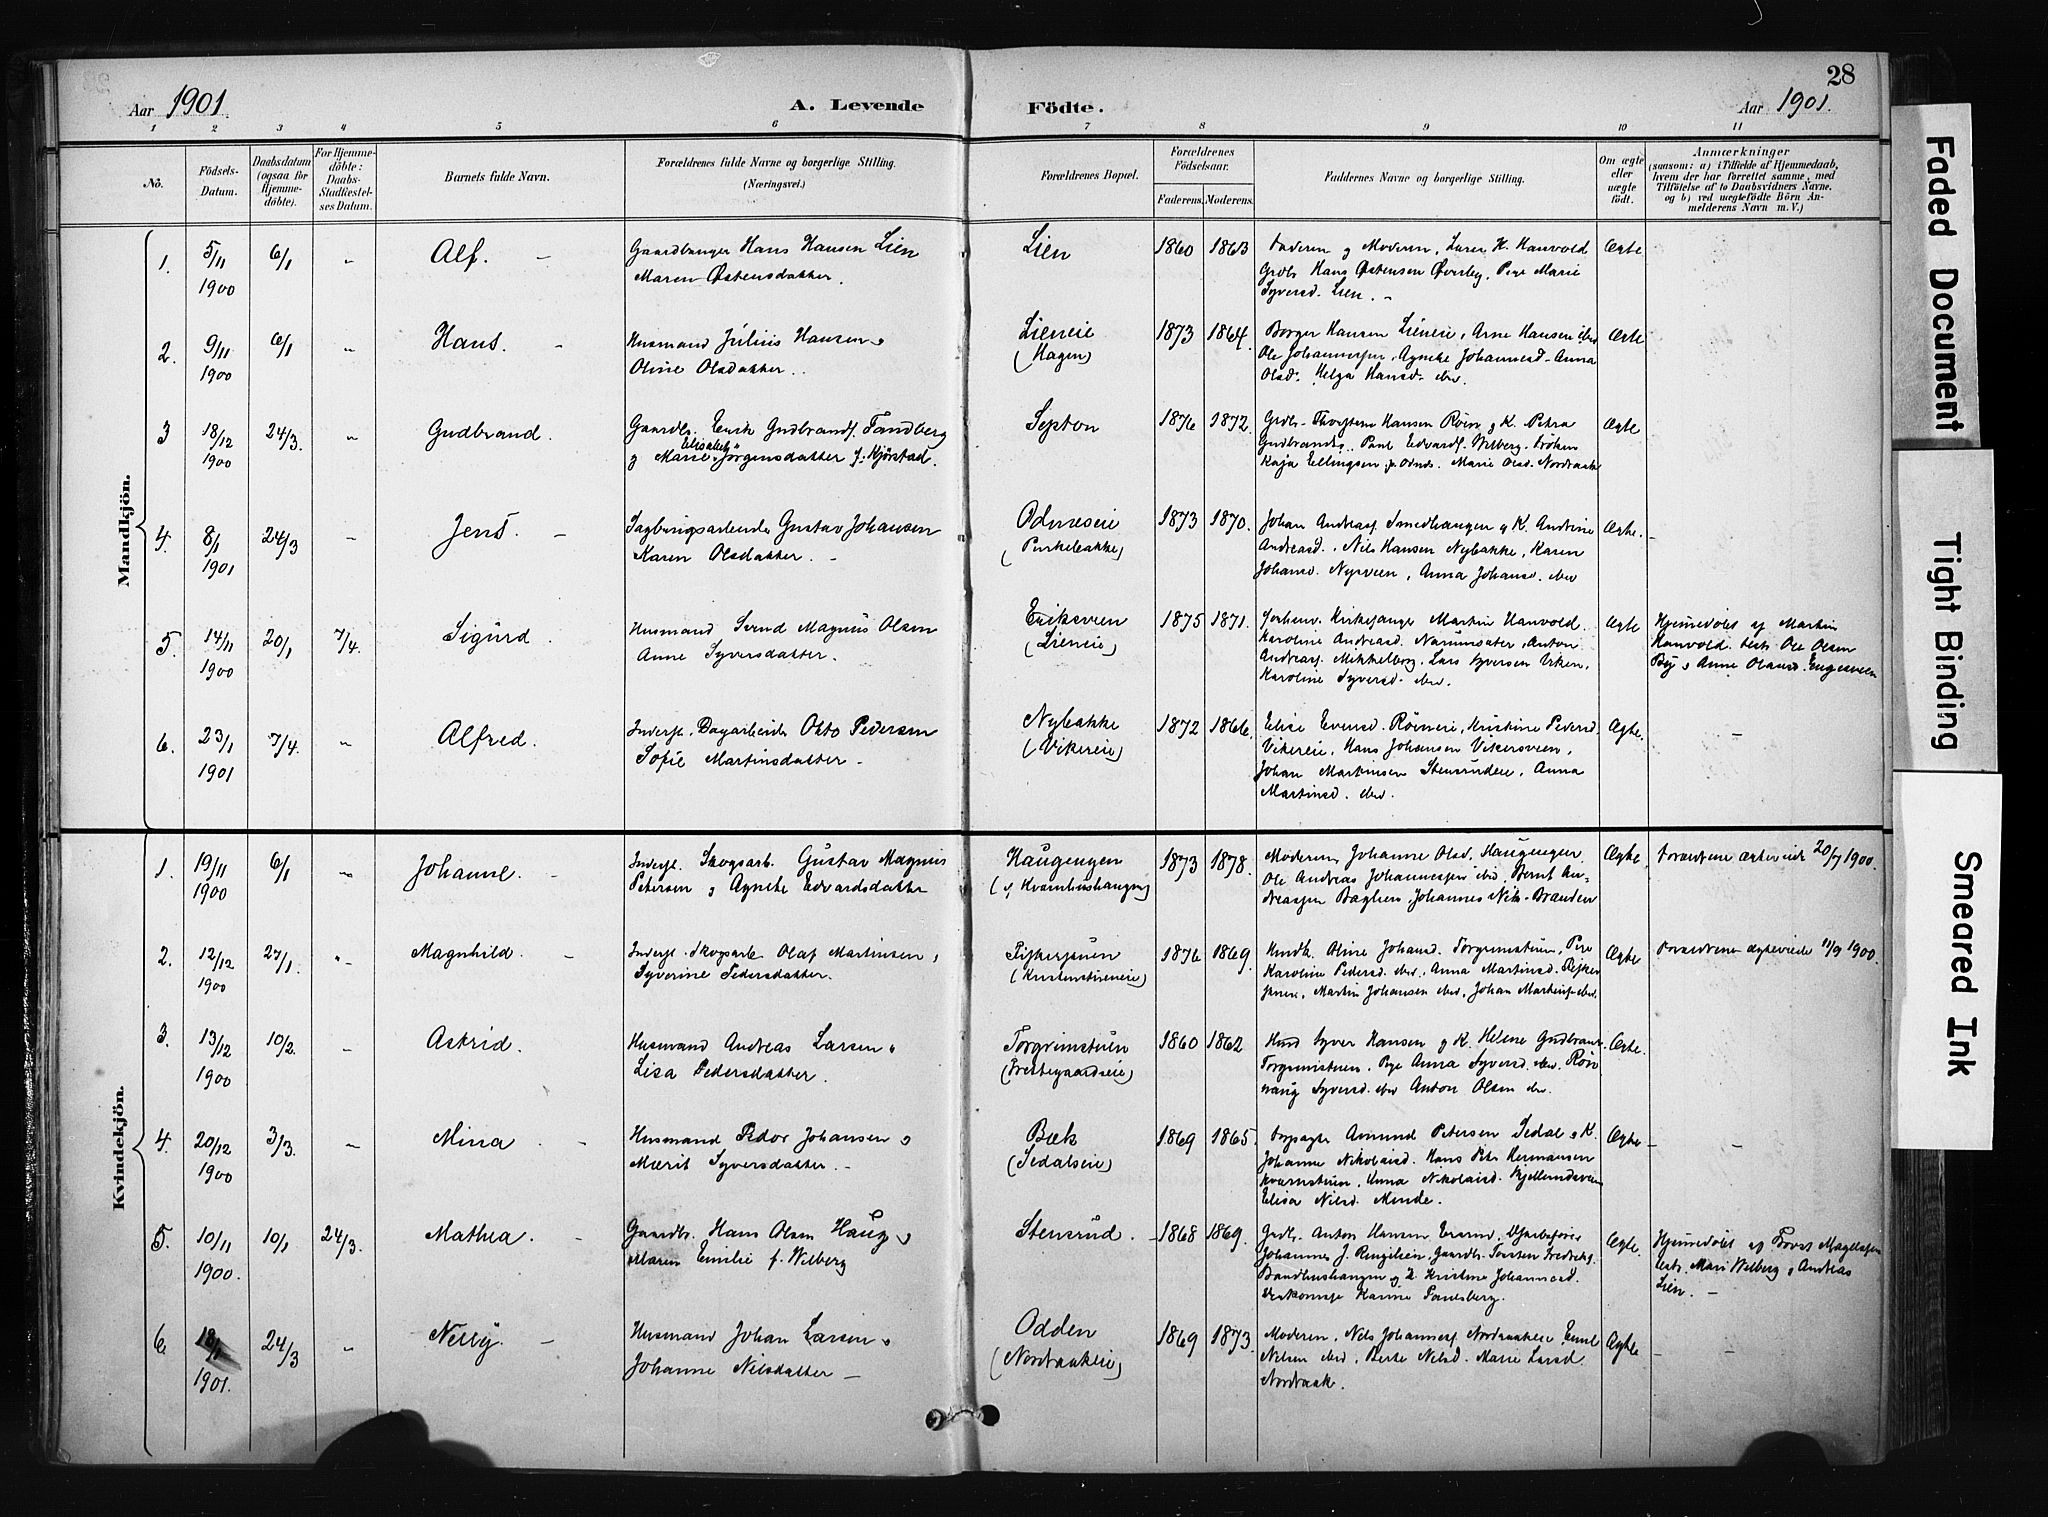 28
Aar 1901. A. Levende Födte. Aar 1901.
1 2 3 4 5 6 7 8 9 10 11
No.
Födsels-Datum.
Daabsdatum (ogsaa for Hjemmedöbte).
For Hjemmedöbte: Daabs-Stadfæstelses Datum.
Barnets fulde Navn.
Forældrenes fulde Navne og borgerlige Stilling.
(Næringsvei.)
Forældrenes Bopæl.
Forældrenes Födselsaar.
Faderens. Moderens.
Faddernes Navne og borgerlige Stilling.
Om ægte eller uægte födt.
Anmærkninger
(saasom: a) i Tilfælde af Hjemmedaab,
hvem der har forrettet samme, med
Tilföielse af to Daabsvidners Navne.
og b) ved uægtefödte Börn An-
melderens Navn m. V.)
Mandkjön.
1. 5/11 1900 6/1 " Alf. –
Gaardbruger Hans Hansen Lien
Maren Østensdatter.
Lien 1860 1863
Faderen og Moderen, Lærer H. Hanvold
Grdbr. Hans Østensen Øverby, Pige Marie
Syversd. Lien. –
Ægte
2. 9/11 1900 6/1 " Hans. –
Husmand Julius Hansen,
Oline Olsdatter.
Lieneie
(Hagen)
1873 1864.
Borger Hansen Lieneie, Arne Hansen ibid
Ole Johannessen, Agnethe Johannesd. Anna
Olsd. Helga Hansd. ibid.
Ægte
3 18/12 1900 24/3 " Gudbrand.
Gaardbr. Erik Gudbrands. Tandberg
g Marie Elisabeth Jørgensdatter f. Kjørstad.
Septon 1876 1872.
Grdbr. Thorsten Hansen Røien g K. Petra
Gudbrandsd. Paul Edvards. Wilberg, Frøken
Kaja Ellingsen Marie Olsd. Nordraak
Ægte
4. 8/1 1901 24/3 " Jens. –
Sagbrugsarbeider Gustav Johansen
Karen Olsdatter. –
Odnæseie
(Purkebakke)
1873 1870.
Johan Andreass. Smedhaugen g K. Andrine
Andreasd., Nils Hansen Nybakke, Karen
Johansd. Nysveen, Anna Johansd. ibid
Ægte. –
5. 14/11 1900 20/1 7/4. Sigurd –
Husmand Svend Magnus Olsen
Anne Syversdatter.
Eriksveen
(Lieneie)
1875 1871.
Forhenv. Kirkesanger Martin Hanvold.
Karoline Andreasd. Narumsæter, Anton
Andreass. Mikkelborg, Lars Syversen Viken,
Karoline Syversd. ibid.
Ægte
Hjemmedøbt af Martin
Hanvold. test. Ole Olsen
By g Anne Olausd. Engesveen
6. 23/1 1901 7/4. " Alfred.
Inders. Dagarbeider Otto Pedersen
Sofie Martinsdatter –
Nybakke
(Vikereie)
1872 1866.
Elise Evensd. Røineie, Kristine Pedersd.
Vikereie, Hans Johansen Vikersveen,
Johan Martinsen Stensrudeie, Anna
Martinsd. ibid.
Ægte. –
Kvindekjön.
1. 19/11 1900 6/1 " Johanne. –
Inders. Skogsarb. Gustav Magnus
Petersen g Agnethe Edvardsdatter
Haugengen
(v. Kvernhushaugen)
1873 1878.
Moderen, Johanne Olsd. Haugengen
Ole Andreas Johannessen ibid, Bernt An-
dreassen Baglien, Johannes Nils. Branden
Ægte.
Forældrene ægteviede 20/7 1900.
2. 12/12 1900 27/1. " Magnhild. –
Inders. Skogsarb. Olaf Martinsen,
Syverine Pedersdatter.
(Kristenstueneie)
1876 1869.
Husmk. Oline Johansd. Torgrimstuen, Pige
Karoline Pedersd. ibid, Anna Martinsd.
Martin Johansen ibid, Johan Martins. ibid.
Ægte
Forældrene ægteviede 11/9 1900.
3. 13/12 1900 10/2. " Astrid.
Husmand Andreas Larsen "
Lisa Pedersdatter.
Torgrimstuen
(Prestegaardseie)
1860 1862
Husmd Syver Hansen g K. Helene Gudbrands.
Torgrimstuen, Pige Anna Syversd. ibid. Røn-
naug Syversd. ibid Anton Olsen ibid.
Ægte.
4. 20/12 1900 3/3. " Mina –
Husmand Peder Johansen,
Marit Syversdatter. –
Bæk
(Sedalseie)
1869 1865.
Forpagter Amund Petersen Sedal g K.
Johanne Nikolaisd. Hans Peter Hermansen
Kvernstuen, Anna Nikolaisd. Kjellundsveen
Elisa Nilsd. Minde.
Ægte – –
5. 10/11 1900. 10/1 24/3. Mathea. –
Gaardbr. Hans Olsen Haug,
Maren Emilie f. Wilberg
Stensrud. – 1868 1869.
Grdbr. Anton Hansen
Johannes J. Ringelien, Gaardbr. Torsten Fredriks.
Baadhushaugen g K. Kristine Johannesd.
Karine Tandberg.
Ægte.
Hjemmedøbt af
test. Mari Wilberg g Andreas
Lien. –
6. 18/1 1901. 24/3 " Nelly –
Husmand Johan Larsen,
Johanne Nilsdatter –
Odden
(Nordraakeie)
1869 1873.
Moderen, Nils Johanness. Nordraakeie Emil
Nilsen ibid, Berte Nilsd. Marie Larsd.
Nordraak.
Ægte – –
Faded Document
Tight Binding
Smeared Ink